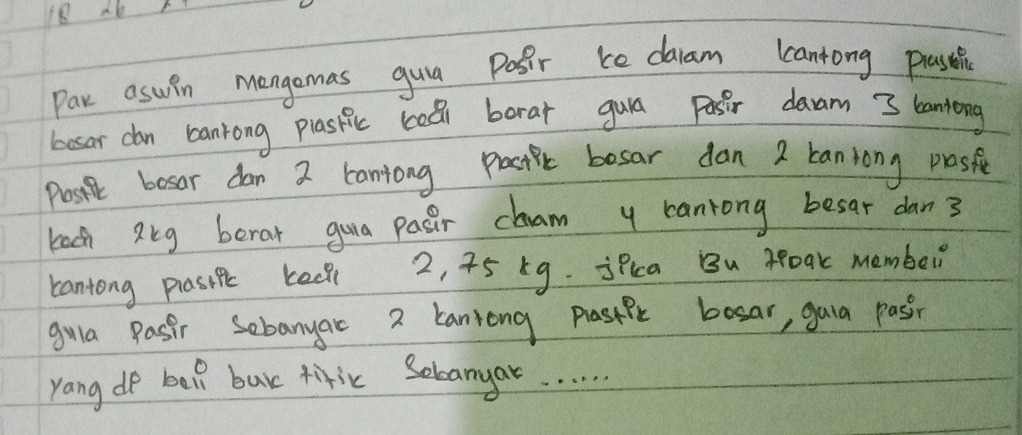 Pak aswin mengemas gula Pasir ke dalam kantong plastik
besar dan kantong plastik kecil berat gula Pasir dalam 3 kantong
Plastik besar dan 2 kantong plastik besar dan 2 kantong plastik
kecil 2kg berat gula pasir dalam 4 kantong besar dan 3
kantong plastik kecil 2,75 kg. jika Bu membeli
gula Pasir Sebanyak 2 kantong Plastik besar, gula pasir
yang di beli buk titik Sebanyak ......